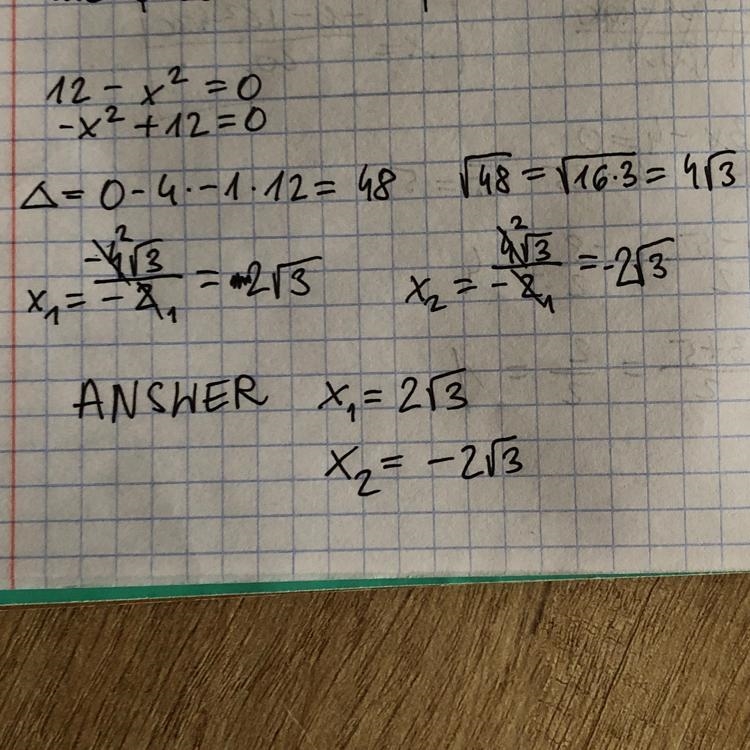 12 - x² = 0
-x² + 12 = 0
Δ = 0 - 4 · -1 · 12 = 48 √48 = √16·3 = 4√3
x₁ = -4̶²√3 / -2̶₁ = 2√3 x₂ = 4̶²√3 / -2̶₁ = -2√3
ANSWER x₁ = 2√3
x₂ = -2√3